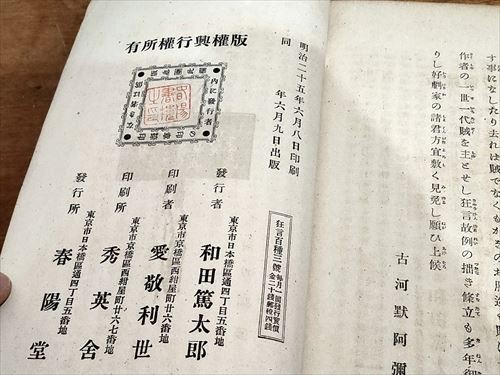 す事になしたり去れば賊でなく
作者の一世一代賊を主とせし狂言故例の拙き條立も多年御
りし好劇家の諸君方宜敷く見免し願ひ上候
古河默阿彌
版權興行權所有
明治二十五年六月八日印刷
同年六月九日出版
狂言百種三號
每月一回發行實價
金二十錢郵稅四錢
發行者
東京市日本橋區通四丁目五番地
和田篤太郎
印刷者
東京市京橋區西紺屋町廿六番地
愛敬利世
印刷所
東京市京橋區西紺屋町廿六七番地
秀英舍
發行所
東京市日本橋區通四丁目五番地
春陽堂